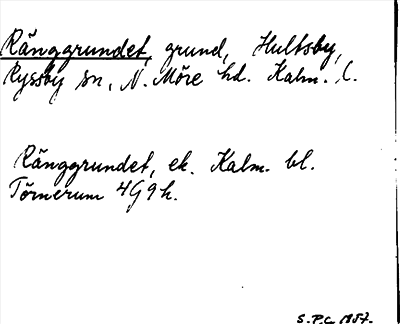 Ränggrundet, grund, Hultsby,
Ryssby sn, N. Möre hd. Kalm. l.
Ränggrundet, ek. Kalm. bl.
Törnerum 4G9h.
S.P.C. 1957.